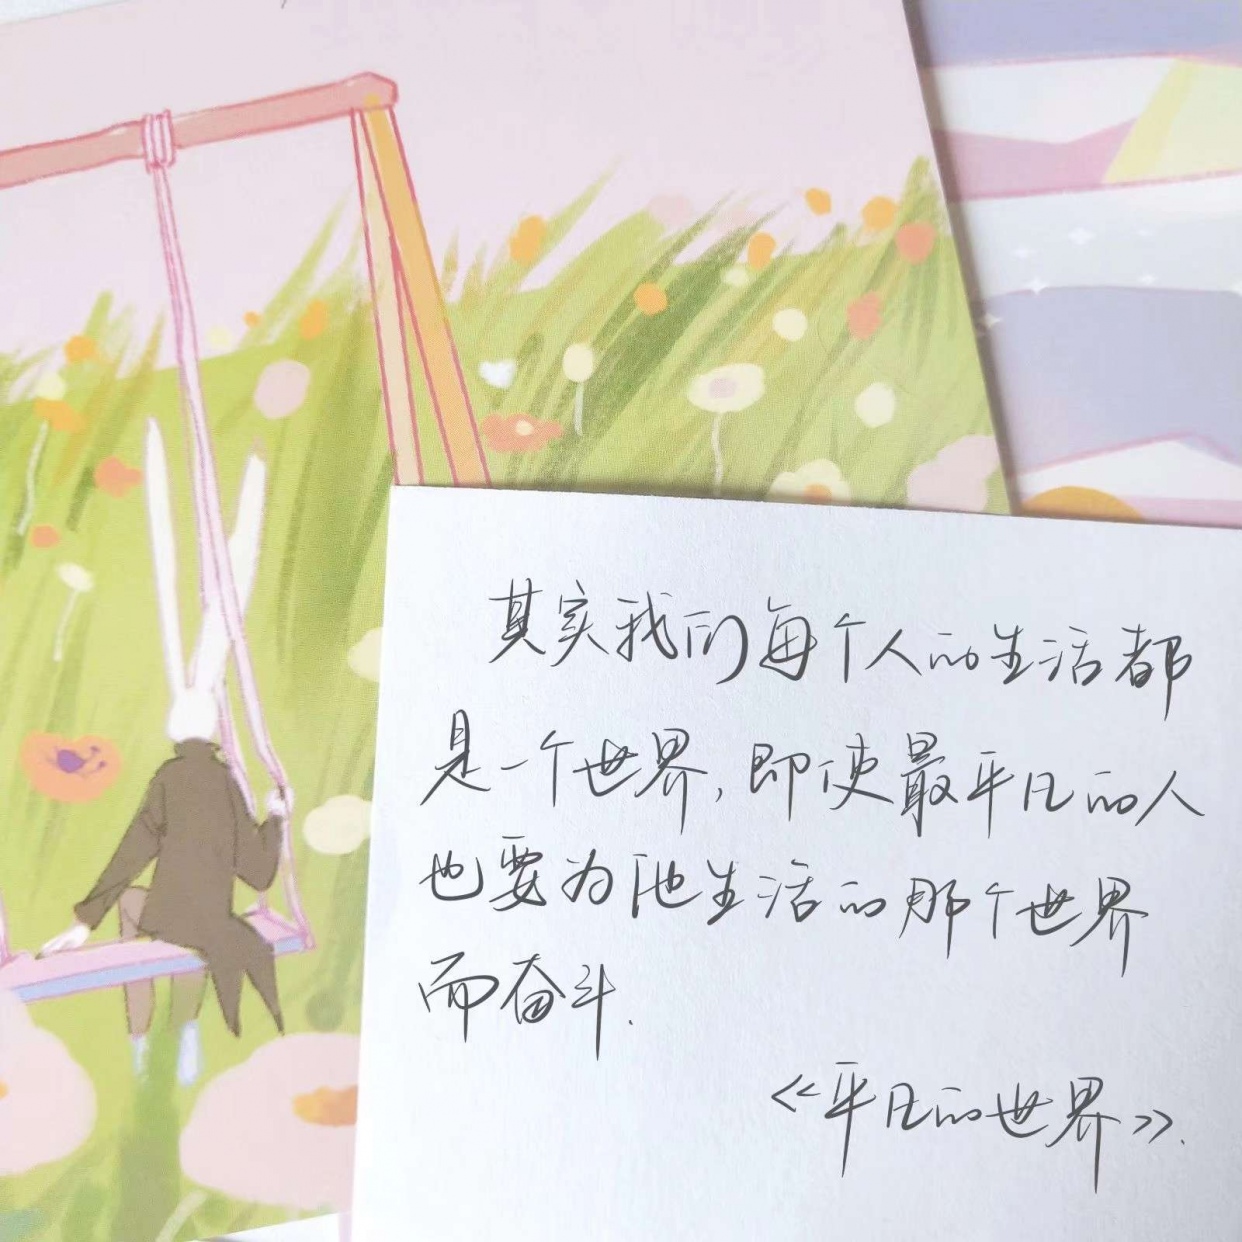 其实我们每个人的生活都
是一个世界,即使最平凡的人
也要为他生活的那个世界
而奋斗.
《平凡的世界》.